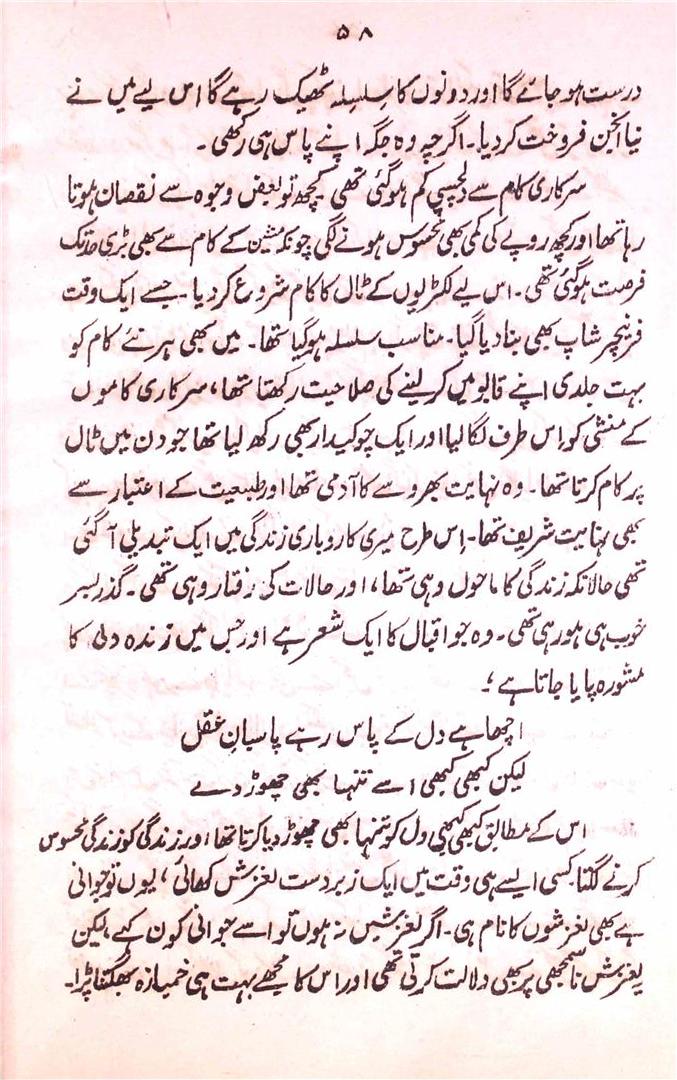 ۵۸
درست ہو جائے گا اور دونوں کا سلسلہ ٹھیک رہے گا اس لیے میں نے
نیا انجن فروخت کر دیا۔ اگرچہ وہ جگہ اپنے پاس ہی رکھی۔
سرکاری کام سے دلچسپی کم ہو گئی تھی کچھ تو بعض وجوہ سے نقصان ہوتا
رہا تھا اور کچھ روپے کی کمی بھی محسوس ہونے لگی چونکہ مشین کے کام سے بھی بڑی حد تک
فرصت ہو گئی تھی۔ اس لیے لکڑیوں کے ٹال کا کام شروع کر دیا۔ جسے ایک وقت
فرنیچر شاپ بھی بنا دیا گیا۔ مناسب سلسلہ ہو گیا تھا۔ میں بھی ہر نئے کام کو
بہت جلدی اپنے قابو میں کر لینے کی صلاحیت رکھتا تھا، سرکاری کاموں
کے منشی کو اِس طرف لگا لیا اور ایک چوکیدار بھی رکھ لیا تھا جو دن میں ٹال
پر کام کرتا تھا۔ وہ نہایت بھروسے کا آدمی تھا اور طبیعت کے اعتبار سے
بھی نہایت شریف تھا۔ اِس طرح میری کاروباری زندگی میں ایک تبدیلی آ گئی
تھی حالانکہ زندگی کا ماحول وہی تھا، اور حالات کی رفتار وہی تھی۔ گذر بسر
خوب ہی ہو رہی تھی۔ وہ جو اقبال کا ایک شعر ہے اور جس میں زندہ دلی کا
مشورہ پایا جاتا ہے ؛
اچھا ہے دل کے پاس رہے پاسبانِ عقل
لیکن کبھی کبھی اسے تنہا بھی چھوڑ دے
اس کے مطابق کبھی کبھی دل کو تنہا بھی چھوڑ دیا کرتا تھا اور زندگی کو زندگی محسوس
کرنے لگتا کسی ایسے ہی وقت میں ایک زبردست لغزش کھائی، یوں تو جوانی
ہے بھی لغزشوں کا نام ہی۔ اگر لغزشیں نہ ہوں تو اسے جوانی کون کہے، لیکن
یہ لغزش ناسمجھی پر بھی دلالت کرتی تھی اور اس کا مجھے بہت ہی خمیازہ بھگتنا پڑا۔